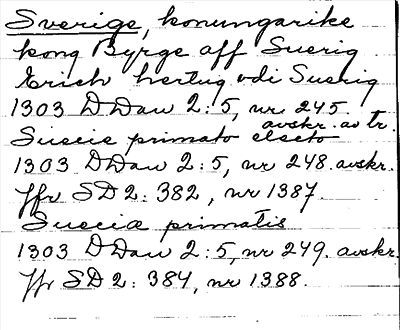 Sverige, konungarike
kong Byrge aff Suerig
Erich hertug vdi Suerig
1303 DDan 2:5, nr 245.
avskr. av tr.
Suecie primato electo
1303 DDan 2:5, nr 248. avskr.
Jfr SD 2: 382, nr 1387.
Sueciæ primatis
1303 DDan 2:5, nr 249. avskr.
Jfr SD 2: 384, nr 1388.